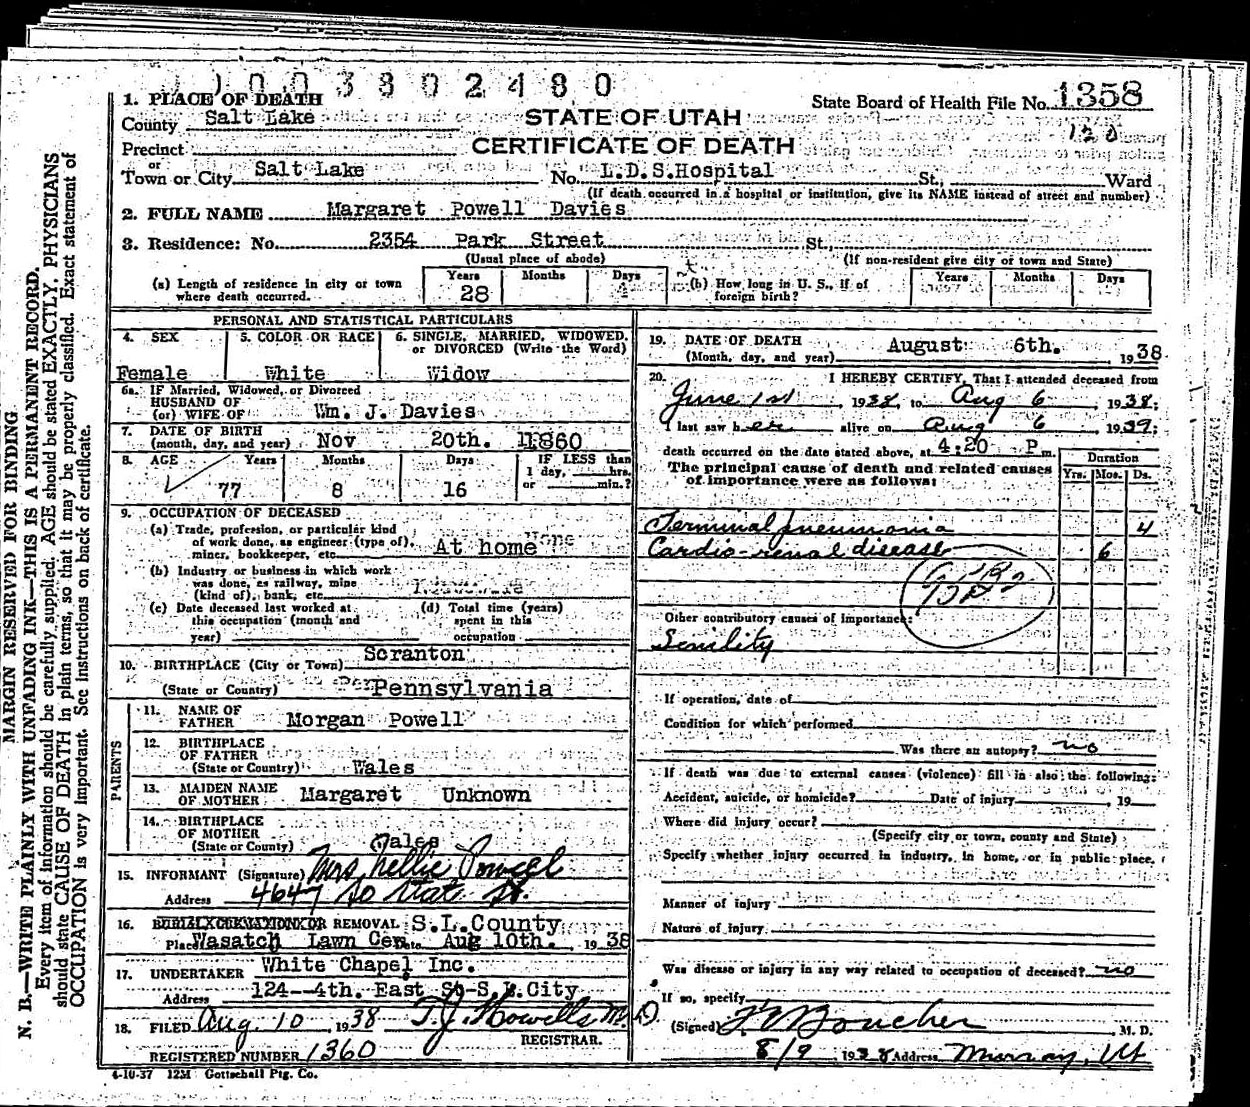 0 0 3 8 0 2 4 8 0
1. PLACE OF DEATH
State Board of Health File No. 1358
County Salt Lake
STATE OF UTAH
120
Precinct
CERTIFICATE OF DEATH
or
Town or City Salt Lake No. L.D.S.Hospital St., Ward
(If death occurred in a hospital or institution, give its NAME instead of street and number)
2. FULL NAME Margaret Powell Davies
3. Residence: No. 2354 Park Street St.,
(Usual place of abode) (If non-resident give city of town and State)
(a) Length of residence in city or town where death occurred. Years 28 Months Days
(b) How long in U. S., if of foreign birth? Years Months Days
PERSONAL AND STATISTICAL PARTICULARS
4. SEX Female
5. COLOR OR RACE White
6. SINGLE, MARRIED, WIDOWED, or DIVORCED (Write the Word) Widow
6a. IF Married, Widowed, or Divorced
HUSBAND OF
(or) WIFE OF Wm. J. Davies
7. DATE OF BIRTH
(month, day, and year) Nov 20th. 1860
8. AGE Years 77 Months 8 Days 16 IF LESS than 1 day, hrs. or min.?
9. OCCUPATION OF DECEASED
(a) Trade, profession, or particular kind of work done, as engineer (type of), miner, bookkeeper, etc. At home
(b) Industry or business in which work was done, as railway, mine (kind of), bank, etc.
(c) Date deceased last worked at this occupation (month and year)
(d) Total time (years) spent in this occupation
10. BIRTHPLACE (City or Town) Scranton
(State or Country) Pennsylvania
PARENTS
11. NAME OF FATHER Morgan Powell
12. BIRTHPLACE OF FATHER (State or Country) Wales
13. MAIDEN NAME OF MOTHER Margaret Unknown
14. BIRTHPLACE OF MOTHER (State or County) Wales
15. INFORMANT (Signature) Mrs Nellie Powell
Address 4647 So State St.
16. BURIAL, CREMATION OR REMOVAL S.L.County
Place Wasatch Lawn Cem Date Aug 10th. 1938
17. UNDERTAKER White Chapel Inc.
Address 124-4th. East St-S.L.City
18. FILED Aug. 10, 1938 T.J. Howells M.D.
REGISTRAR.
REGISTERED NUMBER 1360
4-10-37 12M Gottschall Ptg. Co.
19. DATE OF DEATH
(Month, day, and year) August 6th. 1938
20. I HEREBY CERTIFY, That I attended deceased from
June 1st, 1938, to Aug 6 1938;
I last saw her alive on Aug 6 1937;
death occurred on the date stated above, at 4:20 P m.
The principal cause of death and related causes of importance were as follows:
Duration
Yrs. Mos. Ds.
Terminal pneumonia 4
Cardio-renal disease 6
Other contributory causes of importance:
Senility
If operation, date of
Condition for which performed
Was there an autopsy? no
If death was due to external causes (violence) fill in also the following:
Accident, suicide, or homicide? Date of injury , 19
Where did injury occur?
(Specify city or town, county and State)
Specify whether injury occurred in industry, in home, or in public place.
Manner of injury
Nature of injury
Was disease or injury in any way related to occupation of deceased? no
If so, specify
(Signed) F E Boucher, M. D.
8/9, 1938 Address Murray, Ut
MARGIN RESERVED FOR BINDING
N. B.—WRITE PLAINLY WITH UNFADING INK—THIS IS A PERMANENT RECORD.
Every item of information should be carefully supplied. AGE should be stated EXACTLY, PHYSICIANS
should state CAUSE OF DEATH in plain terms, so that it may be properly classified. Exact statement of
OCCUPATION is very important. See instructions on back of certificate.